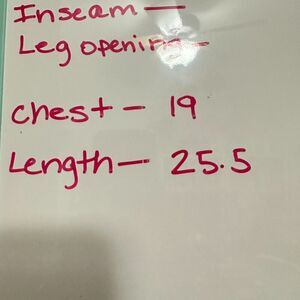 Inseam —
Leg opening -
Chest - 19
Length — 25.5